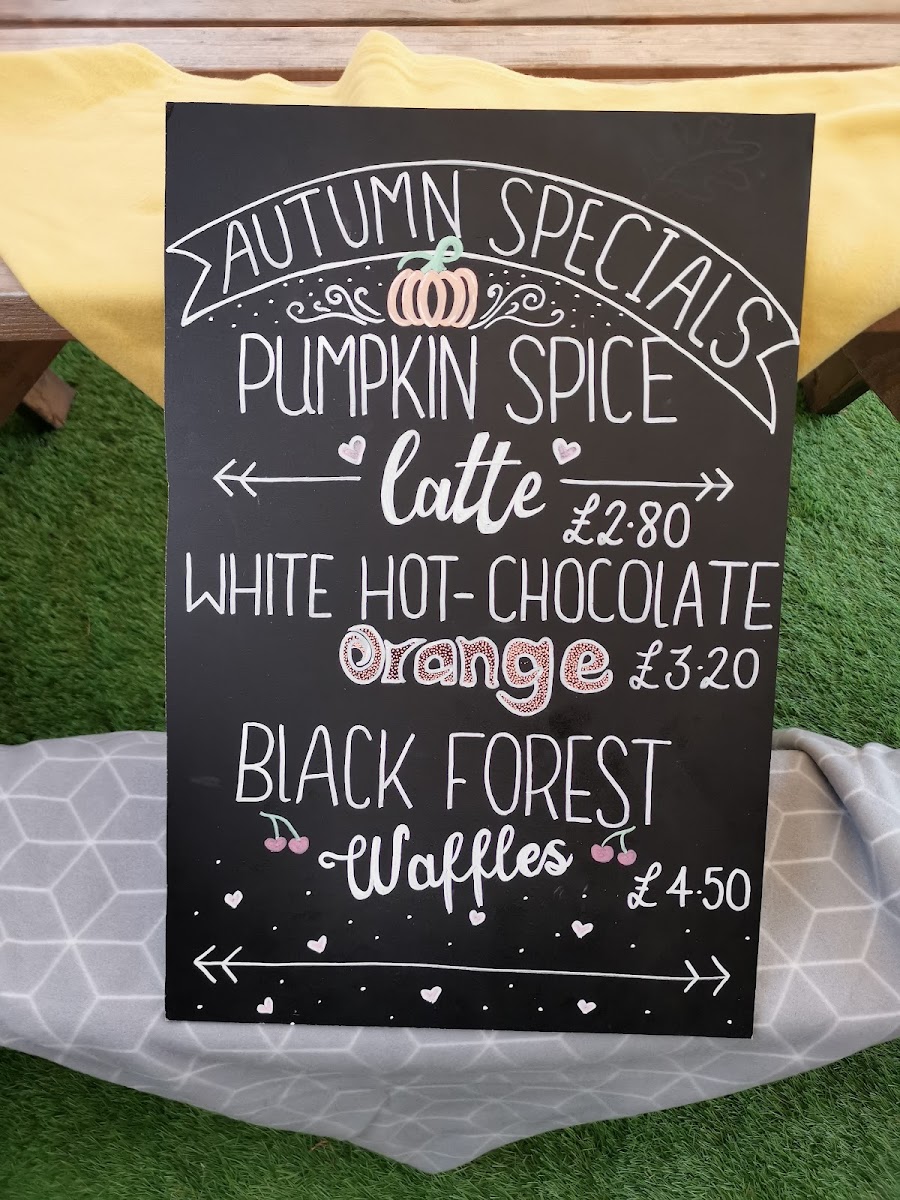 AUTUMN SPECIALS
PUMPKIN SPICE
latte
£2.80
WHITE HOT-CHOCOLATE
Orange £3.20
BLACK FOREST
Waffles
£4.50